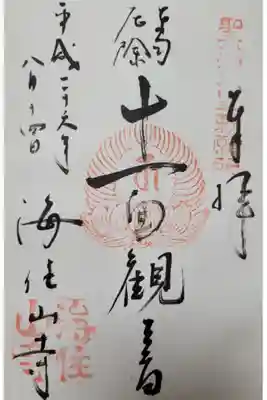 奉拝
厄除
十一面観音
海住山寺
海住
山寺
平成二十六年
八月十四日